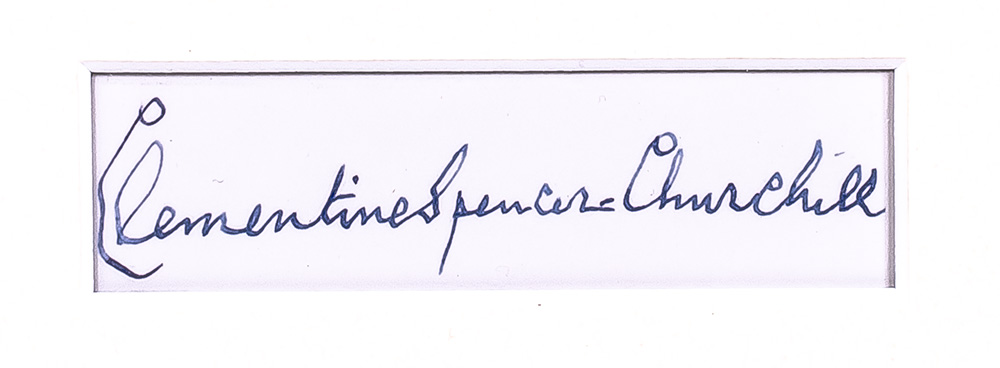 Clementine Spencer-Churchill